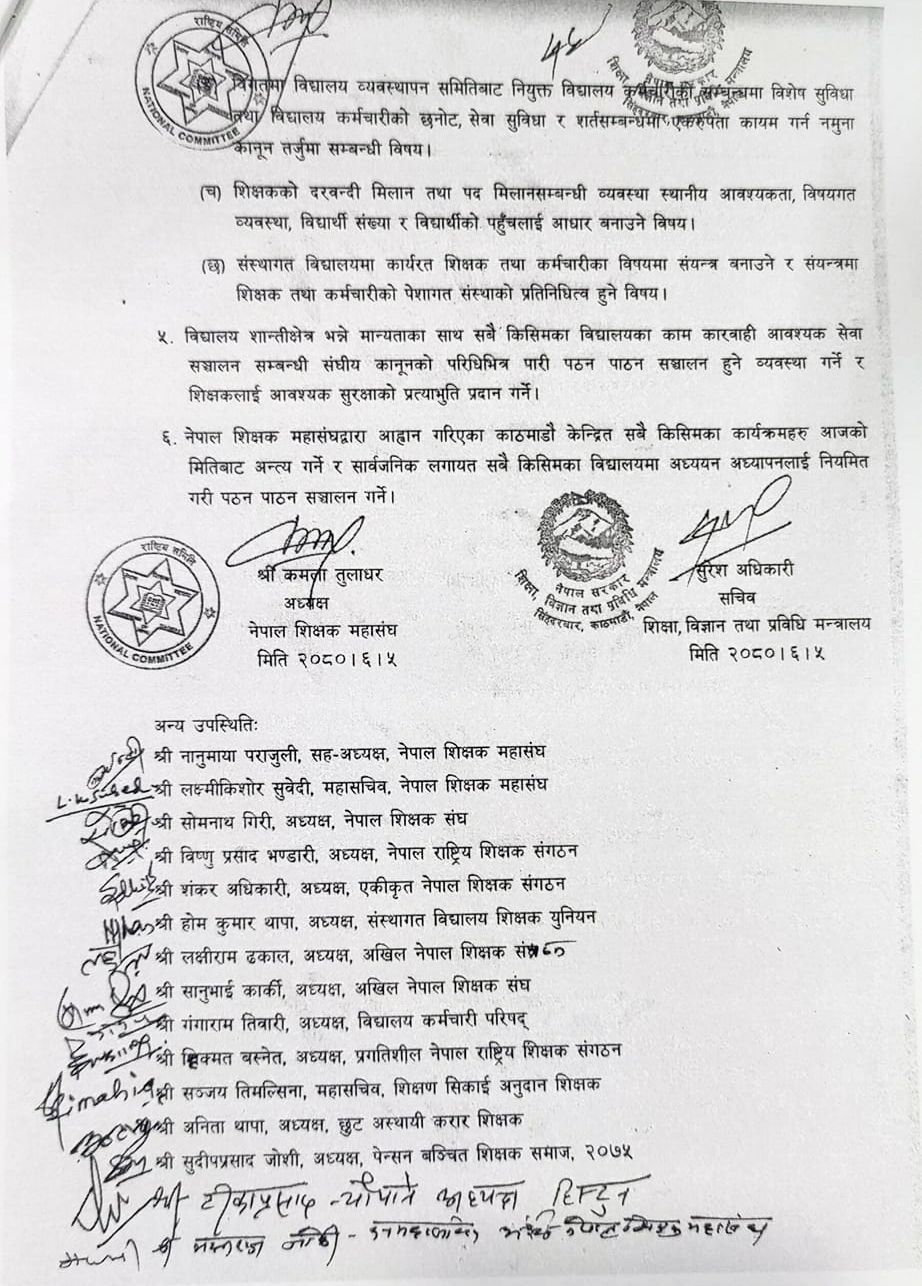 राष्ट्रिय समिति
NATIONAL COMMITTEE
नेपाल सरकार
शिक्षा, विज्ञान तथा प्रविधि मन्त्रालय
सिंहदरबार, काठमाडौं, नेपाल
विगतमा विद्यालय व्यवस्थापन समितिबाट नियुक्त विद्यालय कर्मचारीको सम्बन्धमा विशेष सुविधा
तथा विद्यालय कर्मचारीको छनोट, सेवा सुविधा र शर्तसम्बन्धमा एकरुपता कायम गर्न नमुना
कानून तर्जुमा सम्बन्धी विषय।
(च) शिक्षकको दरवन्दी मिलान तथा पद मिलानसम्बन्धी व्यवस्था स्थानीय आवश्यकता, विषयगत
व्यवस्था, विद्यार्थी संख्या र विद्यार्थीको पहुँचलाई आधार बनाउने विषय।
(छ) संस्थागत विद्यालयमा कार्यरत शिक्षक तथा कर्मचारीका विषयमा संयन्त्र बनाउने र संयन्त्रमा
शिक्षक तथा कर्मचारीको पेशागत संस्थाको प्रतिनिधित्व हुने विषय।
५. विद्यालय शान्तीक्षेत्र भन्ने मान्यताका साथ सबै किसिमका विद्यालयका काम कारवाही आवश्यक सेवा
सञ्चालन सम्बन्धी संघीय कानूनको परिधिभित्र पारी पठन पाठन सञ्चालन हुने व्यवस्था गर्ने र
शिक्षकलाई आवश्यक सुरक्षाको प्रत्याभुति प्रदान गर्ने।
६. नेपाल शिक्षक महासंघद्वारा आह्वान गरिएका काठमाडौ केन्द्रित सबै किसिमका कार्यक्रमहरु आजको
मितिबाट अन्त्य गर्ने र सार्वजनिक लगायत सबै किसिमका विद्यालयमा अध्ययन अध्यापनलाई नियमित
गरी पठन पाठन सञ्चालन गर्ने।
राष्ट्रिय समिति
NATIONAL COMMITTEE
श्री कमला तुलाधर
अध्यक्ष
नेपाल शिक्षक महासंघ
मिति २०८०।६।५
नेपाल सरकार
शिक्षा, विज्ञान तथा प्रविधि मन्त्रालय
सिंहदरबार, काठमाडौं, नेपाल
सुरेश अधिकारी
सचिव
शिक्षा, विज्ञान तथा प्रविधि मन्त्रालय
मिति २०८०।६।५
अन्य उपस्थितिः
श्री नानुमाया पराजुली, सह-अध्यक्ष, नेपाल शिक्षक महासंघ
श्री लक्ष्मीकिशोर सुवेदी, महासचिव, नेपाल शिक्षक महासंघ
श्री सोमनाथ गिरी, अध्यक्ष, नेपाल शिक्षक संघ
श्री विष्णु प्रसाद भण्डारी, अध्यक्ष, नेपाल राष्ट्रिय शिक्षक संगठन
श्री शंकर अधिकारी, अध्यक्ष, एकीकृत नेपाल शिक्षक संगठन
श्री होम कुमार थापा, अध्यक्ष, संस्थागत विद्यालय शिक्षक युनियन
श्री लक्षीराम ढकाल, अध्यक्ष, अखिल नेपाल शिक्षक
श्री सानुभाई कार्की, अध्यक्ष, अखिल नेपाल शिक्षक संघ
श्री गंगाराम तिवारी, अध्यक्ष, विद्यालय कर्मचारी परिषद्
श्री हिक्मत बस्नेत, अध्यक्ष, प्रगतिशील नेपाल राष्ट्रिय शिक्षक संगठन
श्री सञ्जय तिमल्सिना, महासचिव, शिक्षण सिकाई अनुदान शिक्षक
श्री अनिता थापा, अध्यक्ष, छुट अस्थायी करार शिक्षक
श्री सुदीपप्रसाद जोशी, अध्यक्ष, पेन्सन बञ्चित शिक्षक समाज, २०७५
श्री टीकाप्रसाद अध्यक्ष
श्री नेपाल शिक्षक महासंघ